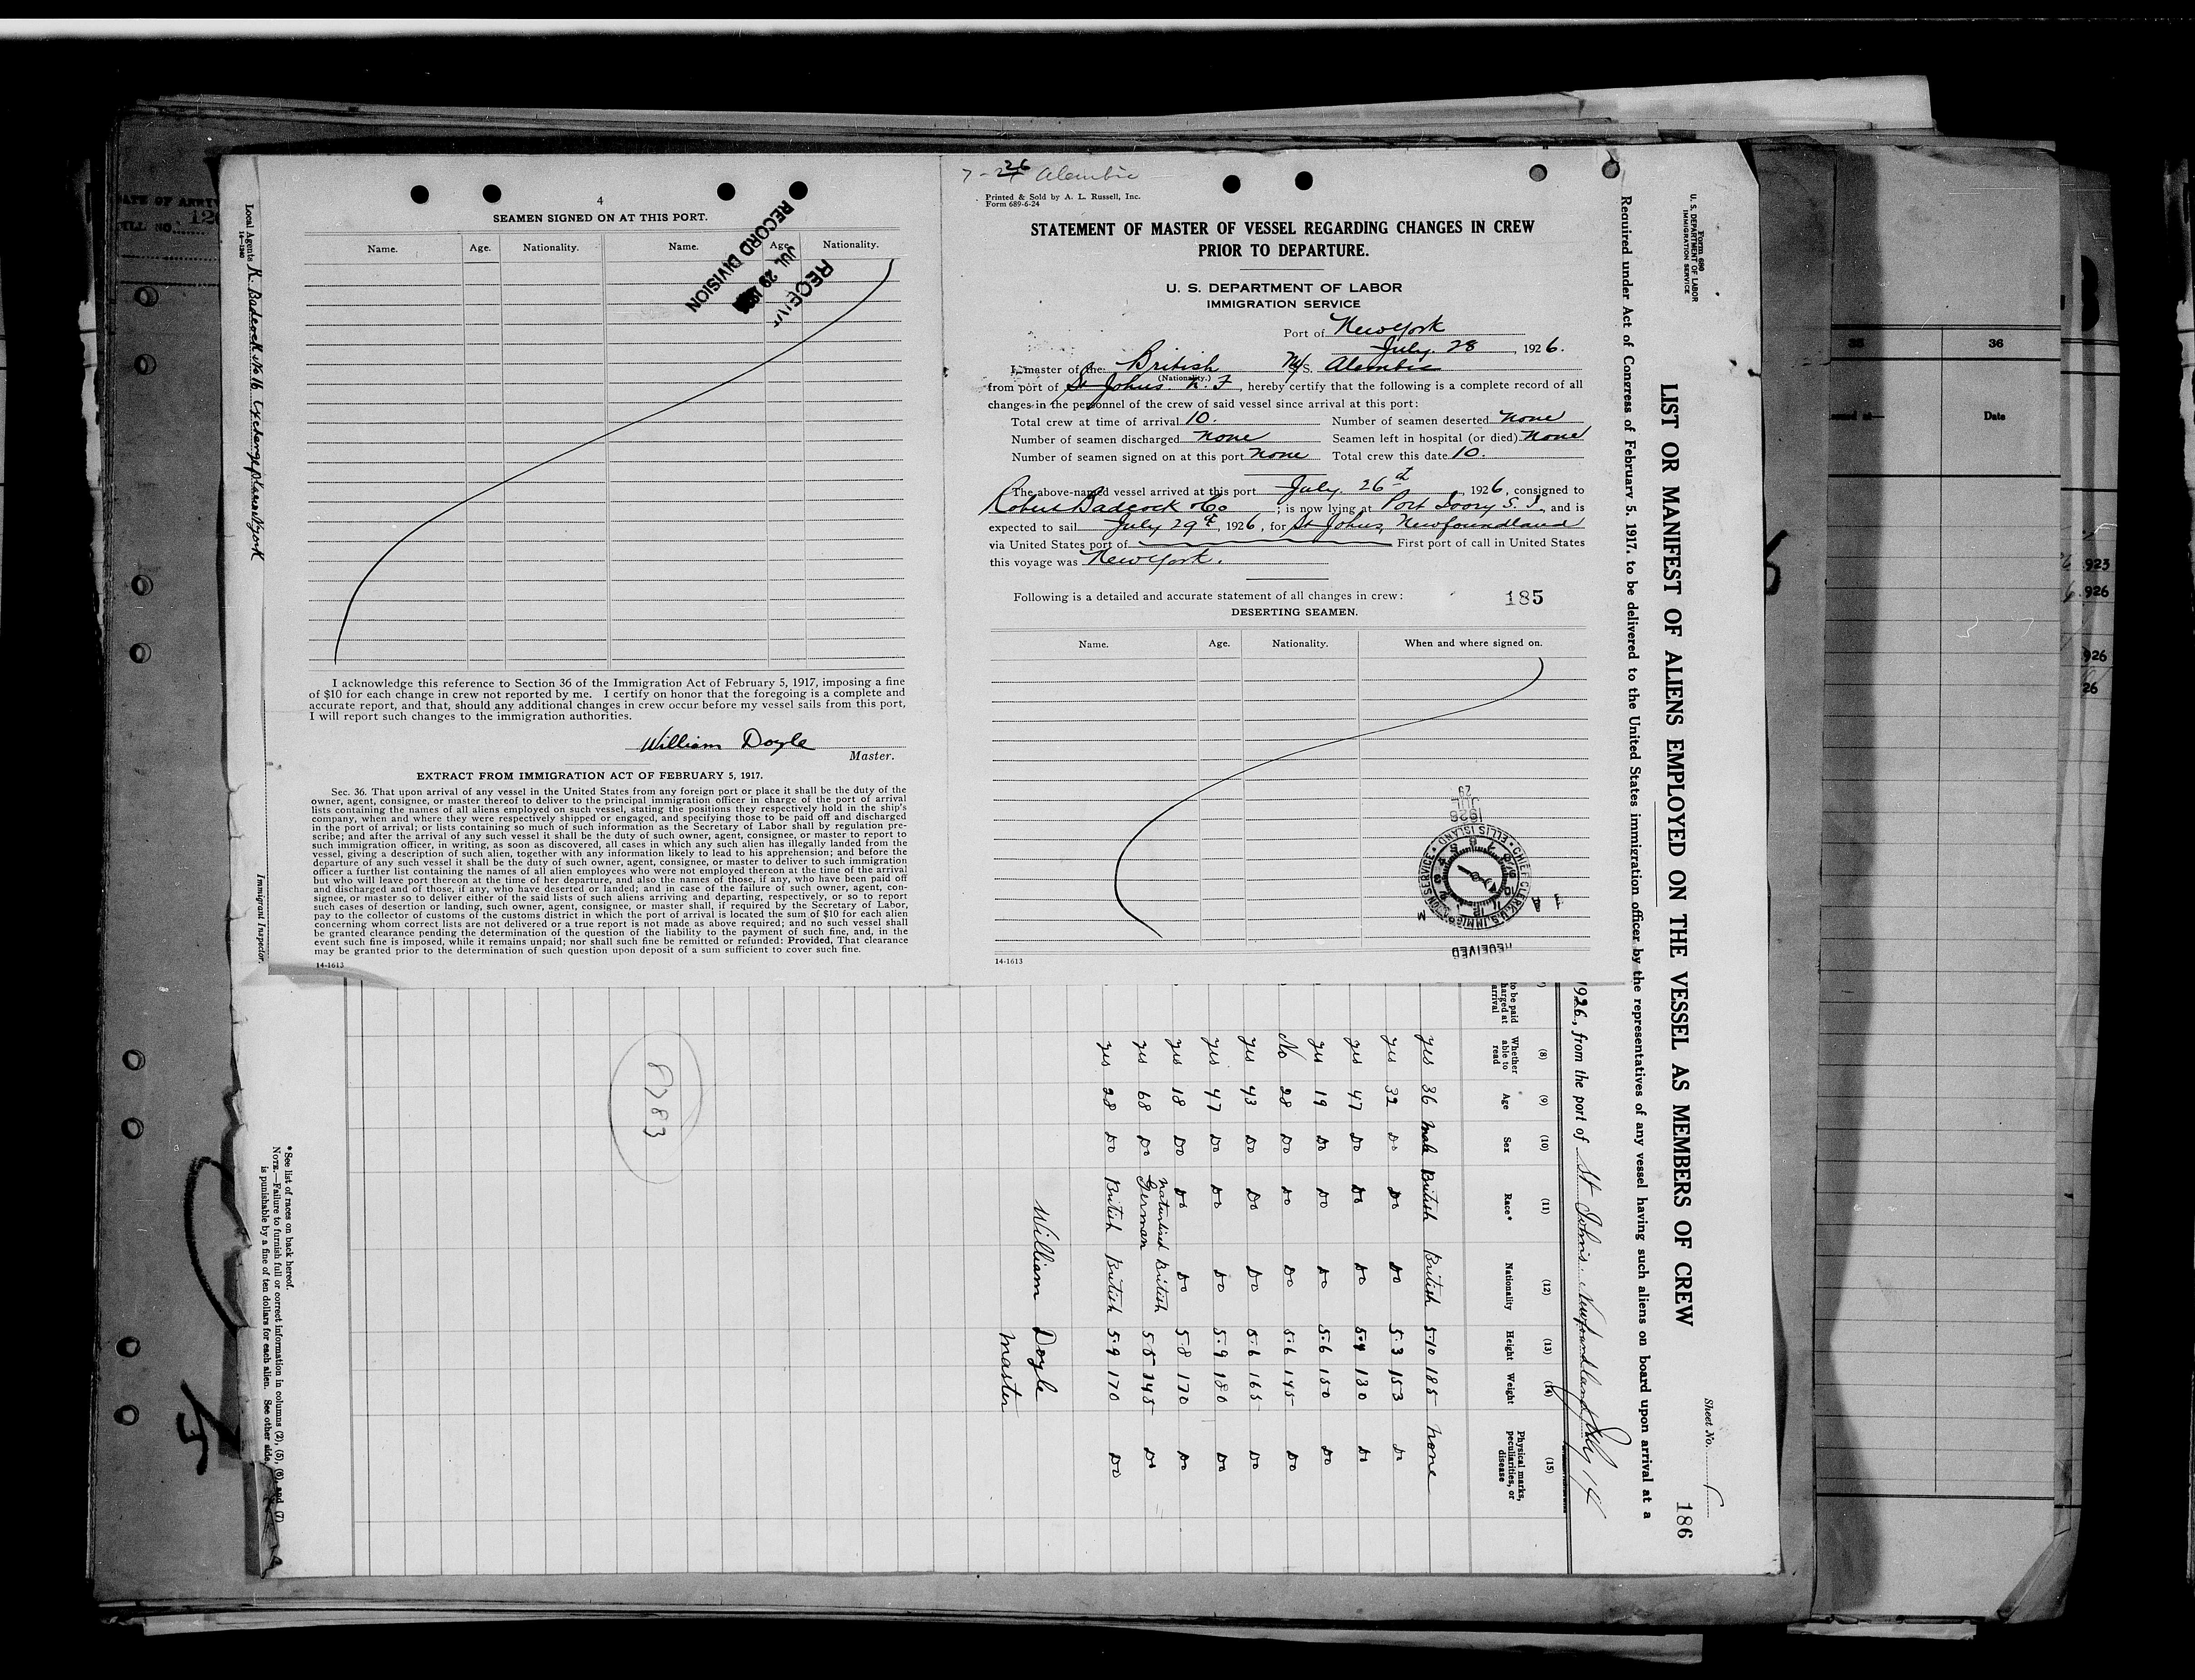 4
SEAMEN SIGNED ON AT THIS PORT.
Name. Age. Nationality. Name. Age. Nationality.
RECEIV
JUL 29 19
RECORD DIVISION
I acknowledge this reference to Section 36 of the Immigration Act of February 5, 1917, imposing a fine
of $10 for each change in crew not reported by me. I certify on honor that the foregoing is a complete and
accurate report, and that, should any additional changes in crew occur before my vessel sails from this port,
I will report such changes to the immigration authorities.
William Doyle
Master.
EXTRACT FROM IMMIGRATION ACT OF FEBRUARY 5, 1917.
Sec. 36. That upon arrival of any vessel in the United States from any foreign port or place it shall be the duty of the
owner, agent, consignee, or master thereof to deliver to the principal immigration officer in charge of the port of arrival
lists containing the names of all aliens employed on such vessel, stating the positions they respectively hold in the ship's
company, when and where they were respectively shipped or engaged, and specifying those to be paid off and discharged
in the port of arrival; or lists containing so much of such information as the Secretary of Labor shall by regulation pre-
scribe; and after the arrival of any such vessel it shall be the duty of such owner, agent, consignee, or master to report to
such immigration officer, in writing, as soon as discovered, all cases in which any such alien has illegally landed from the
vessel, giving a description of such alien, together with any information likely to lead to his apprehension; and before the
departure of any such vessel it shall be the duty of such owner, agent, consignee, or master to deliver to such immigration
officer a further list containing the names of all alien employees who were not employed thereon at the time of the arrival
but who will leave port thereon at the time of her departure, and also the names of those, if any, who have been paid off
and discharged and of those, if any, who have deserted or landed; and in case of the failure of such owner, agent, con-
signee, or master so to deliver either of the said lists of such aliens arriving and departing, respectively, or so to report
such cases of desertion or landing, such owner, agent, consignee, or master shall, if required by the Secretary of Labor,
pay to the collector of customs of the customs district in which the port of arrival is located the sum of $10 for each alien
concerning whom correct lists are not delivered or a true report is not made as above required; and no such vessel shall
be granted clearance pending the determination of the question of the liability to the payment of such fine, and, in the
event such fine is imposed, while it remains unpaid; nor shall such fine be remitted or refunded: Provided, That clearance
may be granted prior to the determination of such question upon deposit of a sum sufficient to cover such fine.
14-1613
7-26 Alembic
Printed & Sold by A. L. Russell, Inc.
Form 689-6-24
STATEMENT OF MASTER OF VESSEL REGARDING CHANGES IN CREW
PRIOR TO DEPARTURE.
U. S. DEPARTMENT OF LABOR
IMMIGRATION SERVICE
Port of New York
July. 28, 1926.
I, master of the British M/S. Alembic
(Nationality.)
from port of St Johns N. F, hereby certify that the following is a complete record of all
changes in the personnel of the crew of said vessel since arrival at this port:
Total crew at time of arrival 10. Number of seamen deserted None
Number of seamen discharged None Seamen left in hospital (or died) None
Number of seamen signed on at this port None Total crew this date 10.
The above-named vessel arrived at this port July. 26th, 1926, consigned to
Robert Badcock & Co; is now lying at Port Ivory S. I, and is
expected to sail July 29th, 1926, for St Johns, Newfoundland
via United States port of First port of call in United States
this voyage was New York.
Following is a detailed and accurate statement of all changes in crew: 185
DESERTING SEAMEN.
Name. Age. Nationality. When and where signed on.
1926 JUL 29
CHIEF CLERK, U.S. IMMIGRATION SERVICE * ELLIS ISLAND *
RECEIVED
14-1613
Form 680
U. S. DEPARTMENT OF LABOR
IMMIGRATION SERVICE
Sheet No.
186
LIST OR MANIFEST OF ALIENS EMPLOYED ON THE VESSEL AS MEMBERS OF CREW
Required under Act of Congress of February 5, 1917, to be delivered to the United States immigration officer by the representatives of any vessel having such aliens on board upon arrival at a
1926, from the port of St John's Newfoundland July 14
(8) (9) (10) (11) (12) (13) (14) (15)
to be paid
harged at
arrival
Whether able to read Age Sex Race* Nationality Height Weight Physical marks, peculiarities, or disease
yes 36 male British British 5·10 185 none
yes 32 Do Do Do 5·3 153 Do
yes 47 Do Do Do 130 Do
yes 19 Do Do Do 5·6 150 Do
No 28 Do Do Do 5·6 145 Do
yes 43 Do Do Do 5·6 165 Do
yes 47 Do Do Do 5·9 180 Do
yes 18 Do Do Do 5·8 170 Do
yes 68 Do German naturlised British 5·5 145 Do
yes 28 Do British British 5·9 170 Do
William Doyle
Master
8783
*See list of races on back hereof.
NOTE.—Failure to furnish full or correct information in columns (2), (5), (6), and (7)
is punishable by a fine of ten dollars for each alien. See other side.
Local Agents R. Badcock & Co 16 Exchange place N. york
14-1240
Immigrant Inspector.
35 36
Date
923
926
926
26